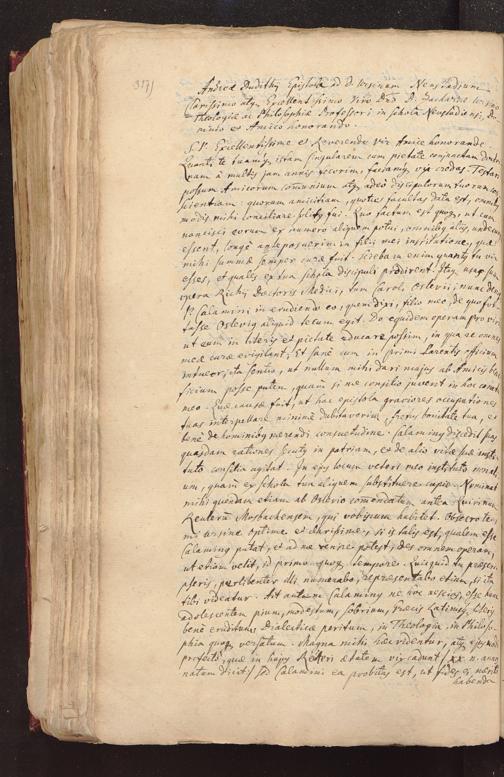 317)
Andreæ Dudithij Epistola ad D. Ursinum Neustadium
Clarissimo atq. Excellentissimo Viro Dnō D. Zachariæ Ursino
Theologiæ ac Philosophiæ Professori in schola Neustadiensi, do-
mino et Amico honorando.
S. P. Excellentissime et Reverende vir Amice honorande.
Quanti te tuamq. istam singularem cum pietate conjunctam
nam à multis jam annis fecerim, faciamq. vix credas. Testari
possum Amicorum communium atq. adeo discipulorum tuorum
scientiam: quorum amicitiam, quoties facultas data est,
modis mihi conciliare solitus fui. Quo factum est quoq. ut cum
nancisci eorum ex numero aliquem potui, omnibus aliis, undecunq.
essent, longè anteposuerim in filii mei institutione, quæ
mihi summæ semper curæ fuit. sciebam enim quantus tu vir
esses, et quales ex tua schola discipuli prodirent. Itaq.
opera Doctoris Medici, tum Caroli Oslevii; nunc
P. Calamini in erudiendo eo, quem dixi, filio meo, de quo for-
tasse Oslevius aliquid tecum egit. Do equidem operam pro
ut eum in literis et pietate educare possim, in qua re omnes
meæ curæ evigilant, Et sanè cum in primis Parentis officium
intuear, ita sentio, ut nullum mihi dari majus ab Amicis
ficium posse putem, quàm si me consilio juvent in hoc
meo. Quæ causa fuit, ut hac epistola graviores occupationes
tuas interpellare minimè dubitaverim, fretus bonitate tua, et
benè de hominibus merendi consuetudine. Calaminus discedit
quasdam rationes in patriam, et de alio vitæ suæ insti-
tuto consilia agitat. In ejus locum vetere meo instituto
um, quàm ex schola tua aliquem substituere cupio. Nominat
mihi quendam etiam ab Oslevio comendatum antea Quirinum
Reuterū Mosbachensem, qui vobiscum habitet. Obsecro te
mi Ursine optime et charissime, si is talis est, qualem esse
Calaminus putat, et ad me venire potest, des omnem operam,
ut etiam velit, id primo quoq. tempore. Quicquid tu præscri-
pseris, perlibenter illi numerabo, repræsentabo etiam, si ita
tibi videatur. Ait autem Calaminus ne hoc nescies, esse hunc
adolescentem pium, modestum, sobrium, Græcis Latinisq. literis
benè eruditum, Dialecticæ peritum, in Theologia, in Philoso-
phia quoq. versatum. Magna mihi hæc videntur, atq. ejusmodi
profectò, quæ in hujus Reuteri ætatem vix cadunt / XX. n. annorum
natum dicit / sed Calamini ea probitas est, ut fides ei meritò
habenda